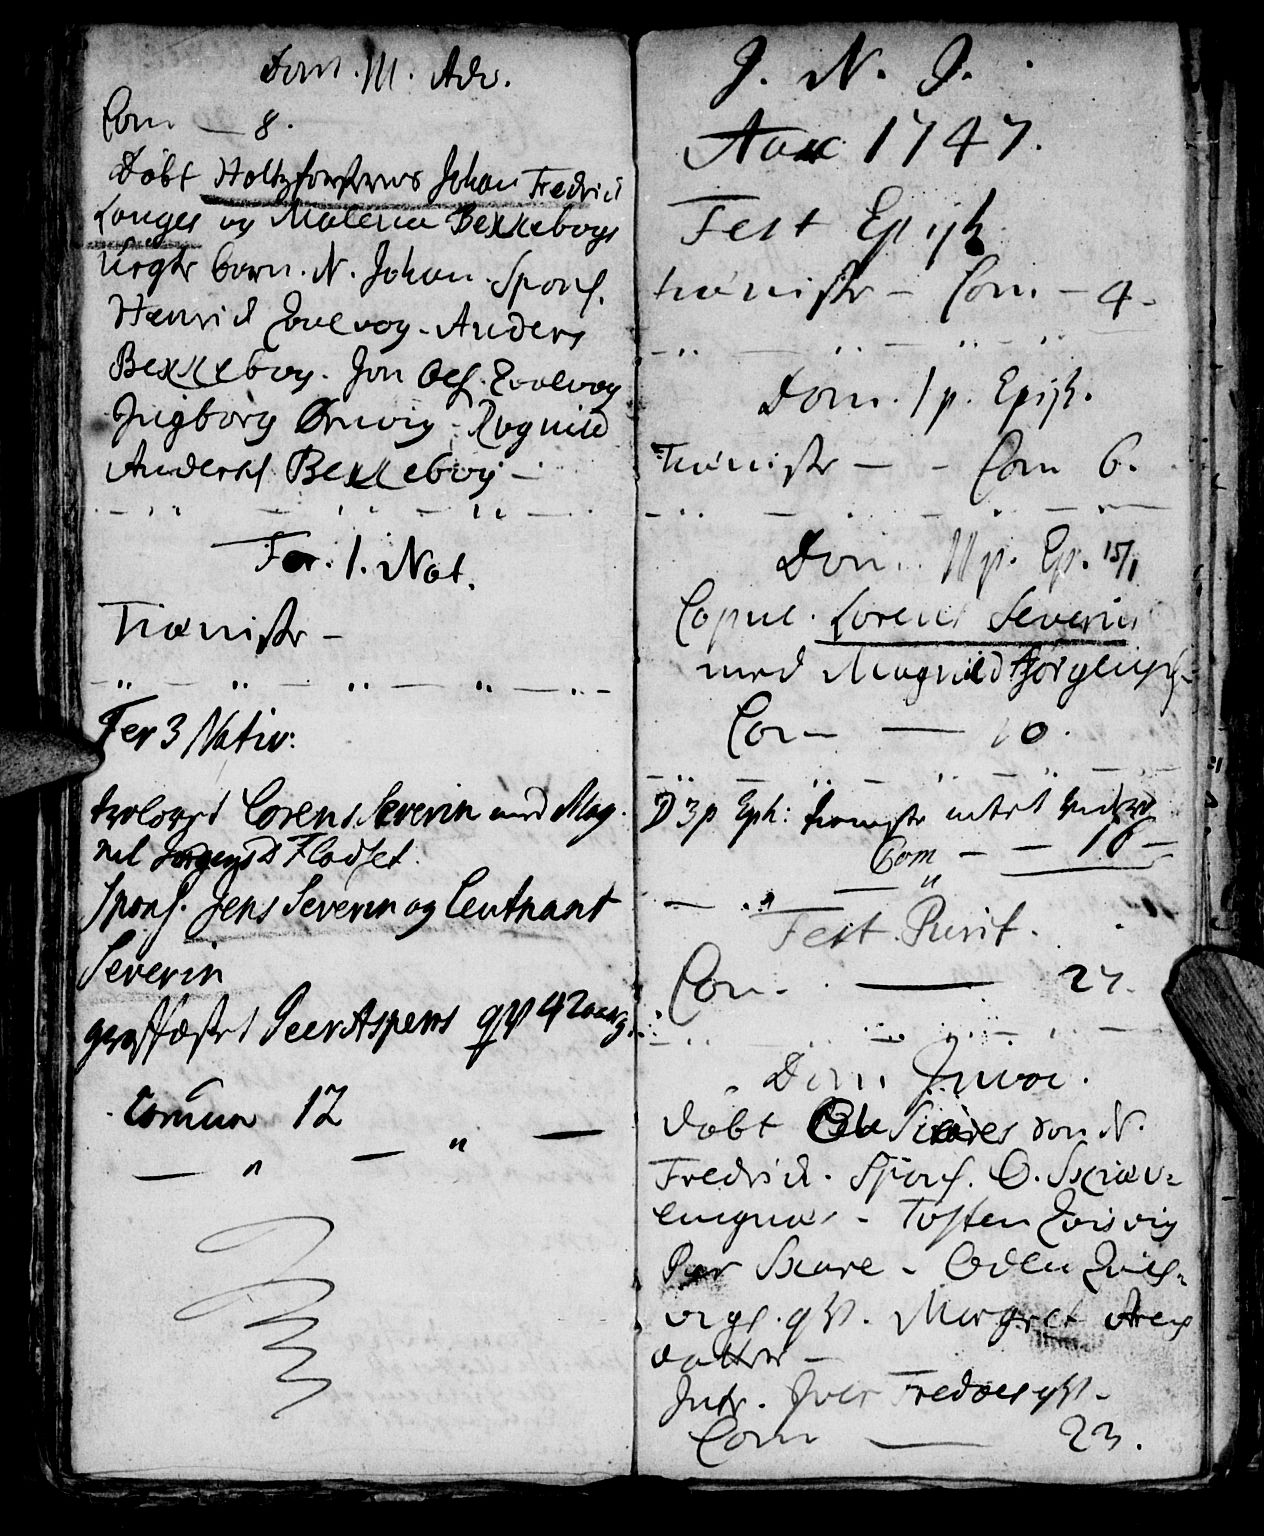 Dom. III. Adv.
Com — 8.
Døbt Holtzførsterens Johan Fredric
Langes og Malena Bekkeboys
uegte barn. N. Johan. Spons.
Henrich - Anders
Bekkeboy. Jon Ols.
Ingborg Ørwig - Ragnild
Anders Bekkeboy -
Fer. 1. Nat.
Tienniste -
Fer 3 Nativ:
trolovet Lorens Severin med Mag
nil Jørgens D Flodset.
Spons. Jens Severin og Leutnant
Severin
græsfæstet Peer Aspens qv 42 aarg.
Comun 12
J. N. J.
Aõ 1747.
Fest Epiph
Tienniste - Com. - 4 -
Dom. 1 p. Epiph.
Tienniste - - Com 6.
Dom. II p. Ep. 15/1
Copul. Lorens Severin
med Magnild Jørgens
Com — 10.
D 3 p Eph: tienniste
Com - - 16 -
Fest. Purif.
Com. — 27.
Dom. Invoc.
døbt Ole Skares søn N.
Fredrich. Spons. O.
- Tosten
Per Skare - Oden
qv. Margret Ares
datter -
Intr. Iver qv -
Com — 23.